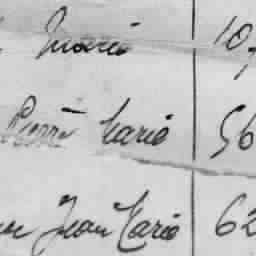 Marie 107
Pierre Marie 56
Jean Marie 62